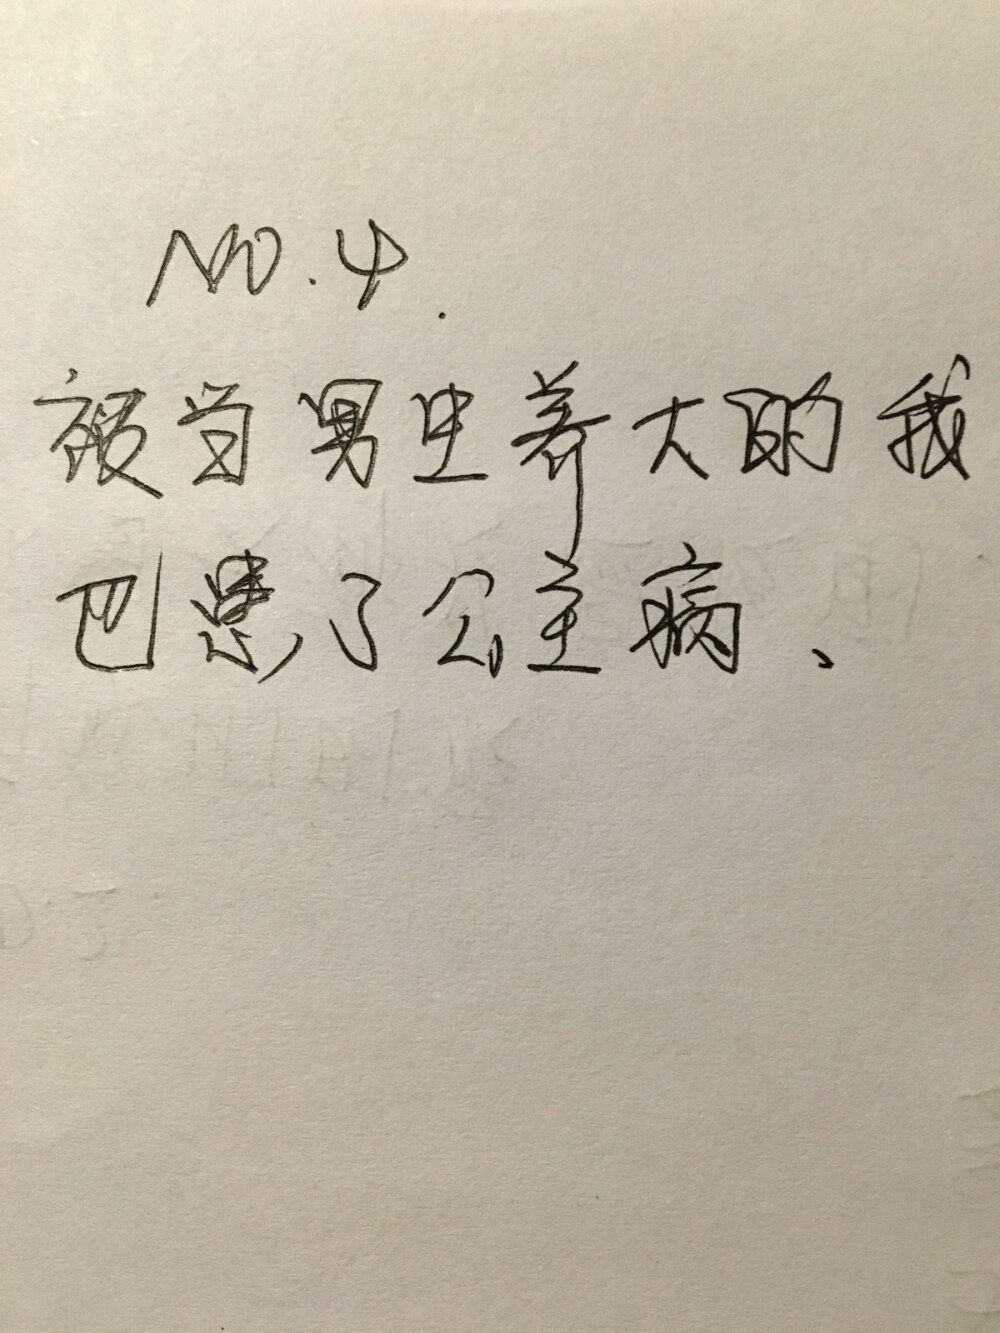 NO.4.
被当男生养大的我
巴患了公主病、